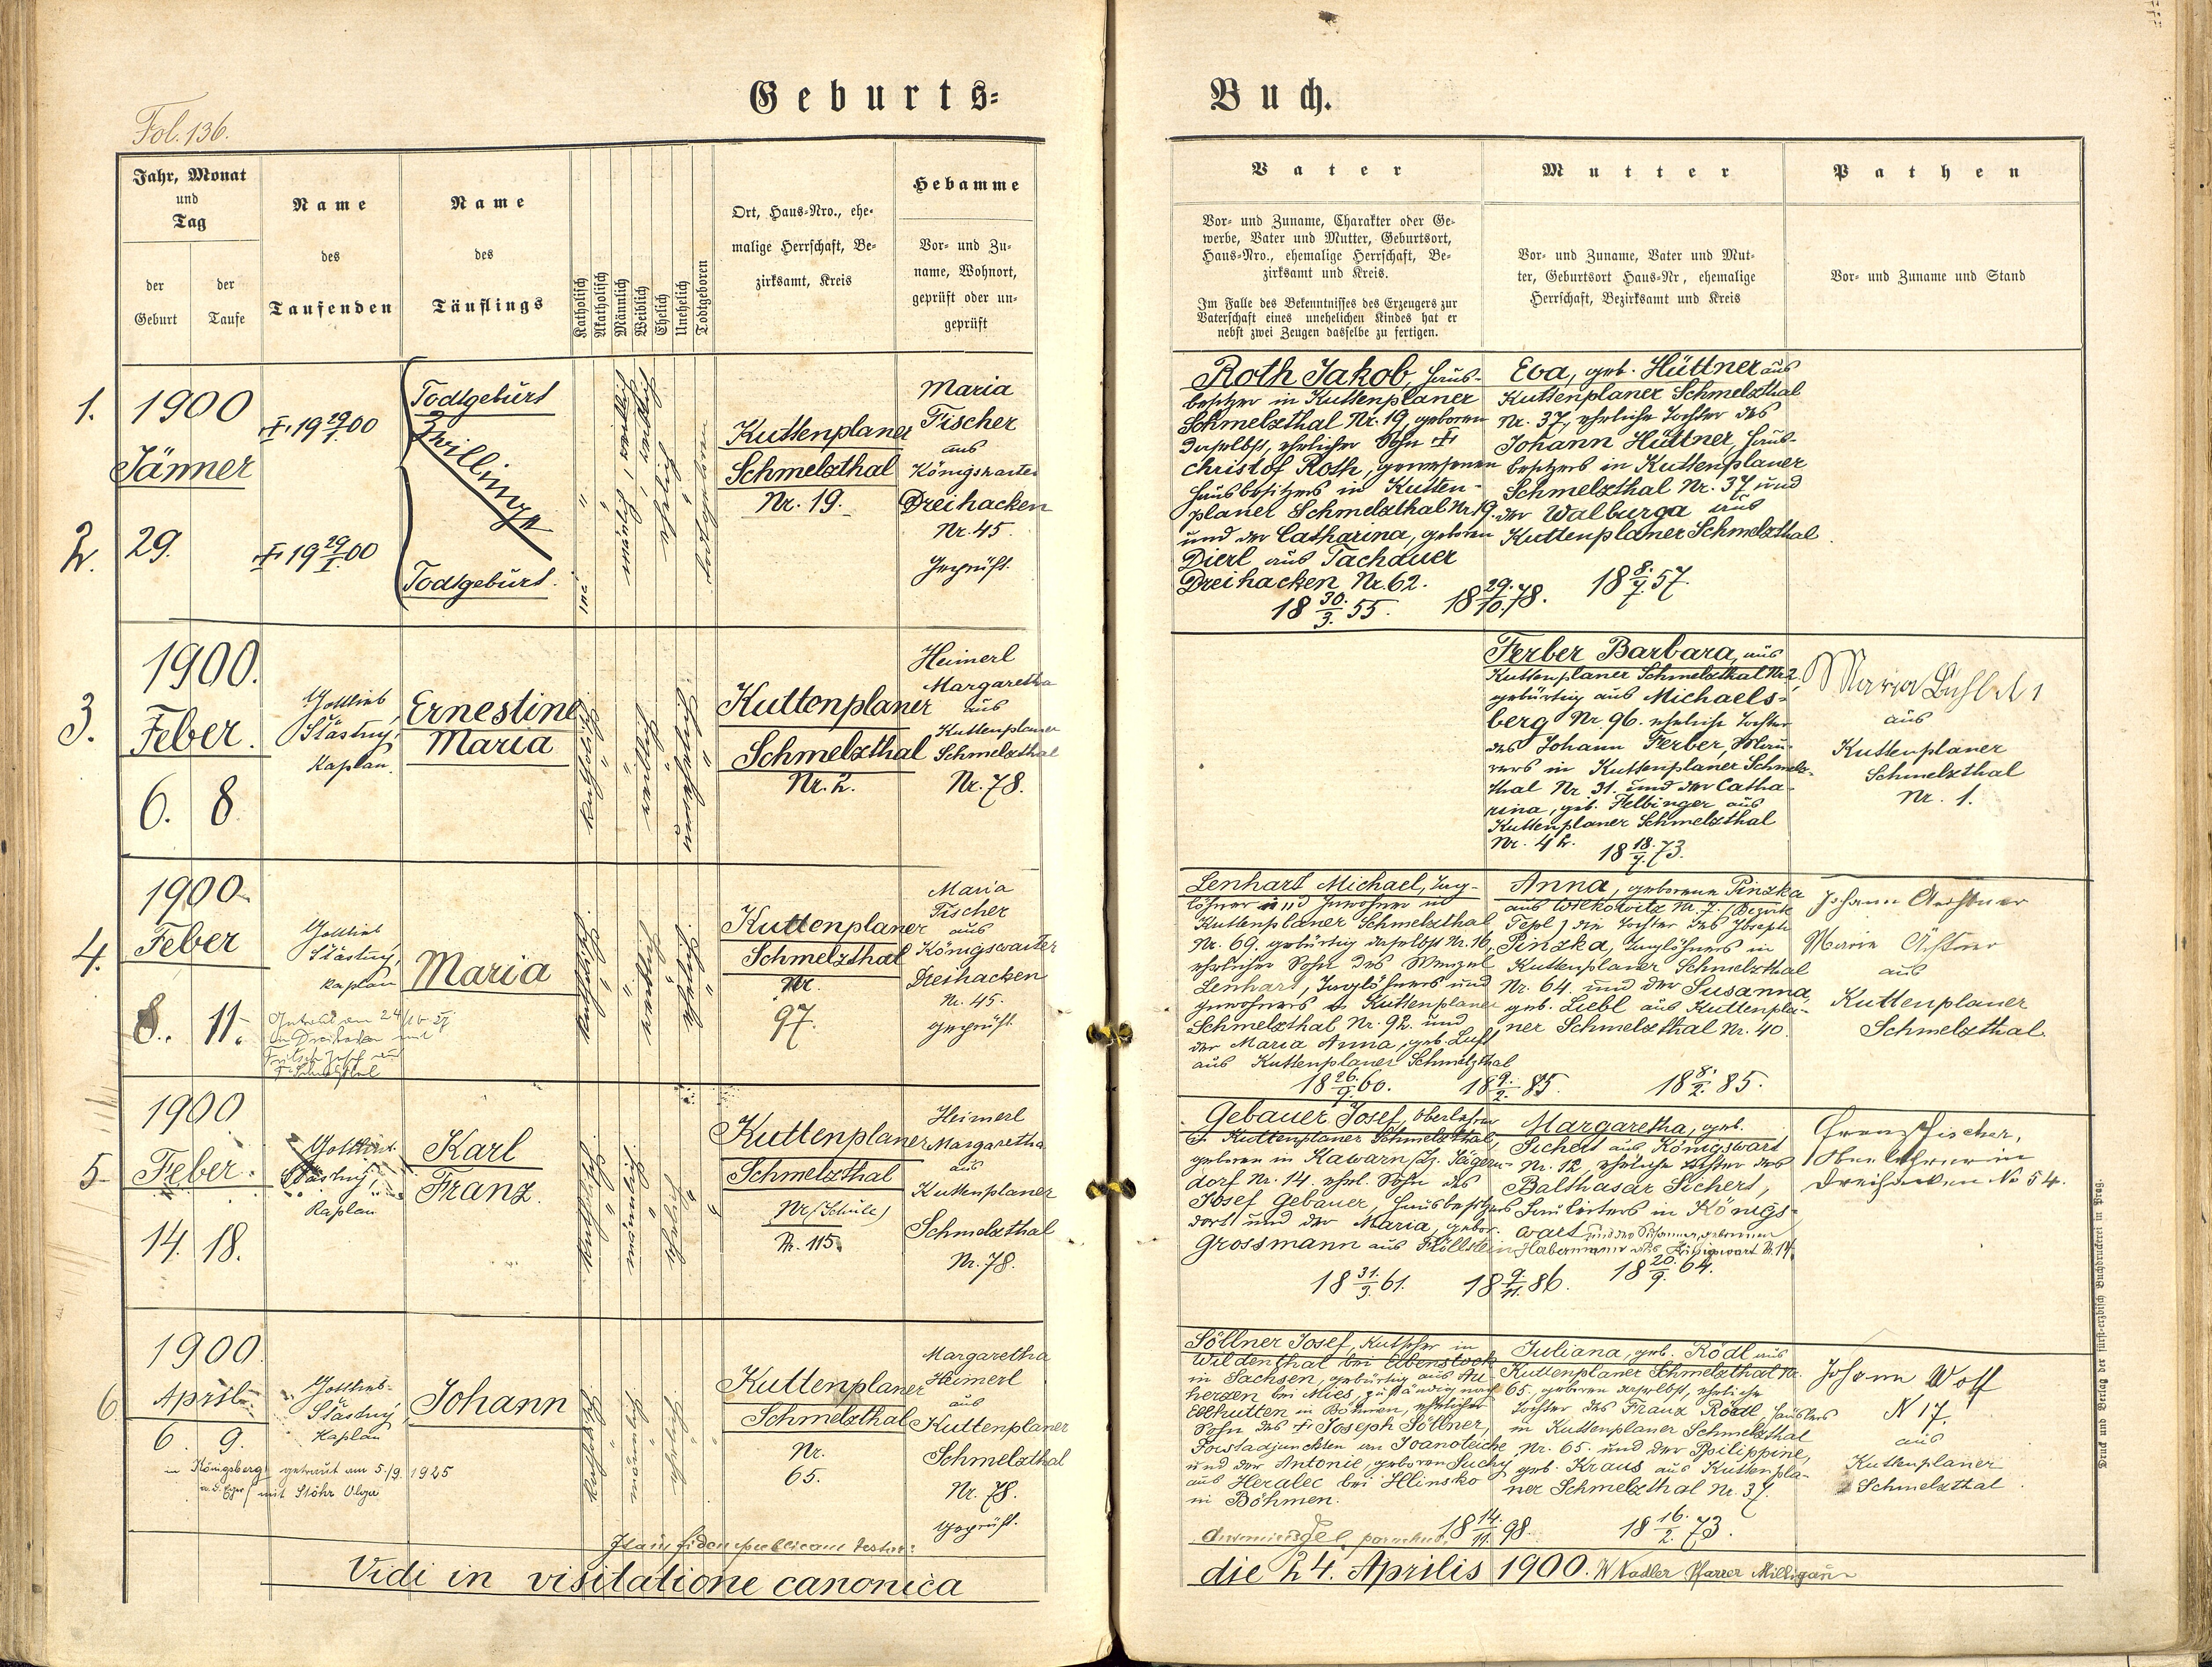 Fol. 136.
Geburts=
Jahr, Monat
und
Tag
der
Geburt
der
Taufe
Name
des
Taufenden
Name
des
Täuflings
Katholisch
Akatholisch
Männlich
Weiblich
Ehelich
Unehelich
Todtgeboren
Ort, Haus=Nro., ehe=
malige Herrschaft, Be=
zirksamt, Kreis
Hebamme
Vor= und Zu=
name, Wohnort,
geprüft oder un=
geprüft
1.
1900
Jänner
2.
29.
19 29/1. 00
19 29/I. 00
Todtgeburt
Zwillinge
Todtgeburt.
Kuttenplaner
Schmelzthal
Nr. 19.
Maria
Fischer
aus
Königswarter
Dreihacken
Nr. 45.
Geprüft.
3.
1900.
Feber.
6. 8.
Gottlieb
Šťástný,
Kaplan.
Ernestine
Maria
katholisch
weiblich
unehelich
Kuttenplaner
Schmelzthal
Nr. 2.
Heimerl
Margaretha
aus
Kuttenplaner
Schmelzthal
Nr. 78.
4.
1900.
Feber
8. 11.
Gottlieb
Šťástný,
Kaplan
Maria
katholisch
weiblich
ehelich
Kuttenplaner
Schmelzthal
Nr.
97.
Maria
Fischer
aus
Königswarter
Dreihacken
Nr. 45.
geprüft.
5.
1900
Feber.
14. 18.
Gottlieb
Šťástný,
Kaplan
Karl
Franz.
katholisch
männlich
ehelich
Kuttenplaner
Schmelzthal
Nr (Schule)
N. 115.
Heimerl
Margaretha
aus
Kuttenplaner
Schmelzthal
Nr. 78.
6
1900.
April.
6. 9.
Gottlieb
Šťástný
Kaplan
in Königsberg getraut am 5./9. 1925
a. d. Eger mit Stöhr Olga
Johann
katholisch
männlich
ehelich
Kuttenplaner
Schmelzthal
Nr.
65.
Margaretha
Heimerl
aus
Kuttenplaner
Schmelzthal
Nr. 78.
geprüft.
Vidi in visitatione canonica
Buch.
Vater
Vor= und Zuname, Charakter oder Ge=
werbe, Vater und Mutter, Geburtsort,
Haus=Nro., ehemalige Herrschaft, Be=
zirksamt und Kreis.
Im Falle des Bekenntnisses des Erzeugers zur
Vaterschaft eines unehelichen Kindes hat er
nebst zwei Zeugen dasselbe zu fertigen.
Mutter
Vor= und Zuname, Vater und Mut=
ter, Geburtsort Haus=Nr, ehemalige
Herrschaft, Bezirksamt und Kreis
Pathen
Vor= und Zuname und Stand
Roth Jakob, Haus-
besitzer in Kuttenplaner
Schmelzthal Nr. 19, geboren
daselbst, ehelicher Sohn des †
Christof Roth, gewesenen
Hausbesitzers in Kutten-
planer Schmelzthal Nr 19.
und der Catharina, geboren
Dierl aus Tachauer
Dreihacken Nr. 62.
18 30./3. 55. 18 29./10. 78.
Eva, geb. Hüttner aus
Kuttenplaner Schmelzthal
Nr. 37, eheliche Tochter des
Johann Hüttner, Haus-
besitzers in Kuttenplaner
Schmelzthal Nr. 37 und
der Walburga aus
Kuttenplaner Schmelzthal.
18 8./7. 57.
Ferber Barbara, aus
Kuttenplaner Schmelzthal Nr 2.
gebürtig aus Michaels-
berg Nr 96. eheliche Tochter
des Johann Ferber, Mau-
rers in Kuttenplaner Schmelz-
thal Nr 31. und der Catha-
rina, geb. Helbinger aus
Kuttenplaner Schmelzthal
Nr. 42.
18 18./7. 73.
Maria
aus
Kuttenplaner
Schmelzthal
Nr. 1.
Lenhart Michael, Tag-
löhner und Inwohner in
Kuttenplaner Schmelzthal
Nr. 69. gebürtig daselbst Nr. 16,
ehelicher Sohn des Wenzel
Lenhart, Taglöhners und
Inwohners in Kuttenplaner
Schmelzthal Nr. 92. und
der Maria Anna, geb. Luft
aus Kuttenplaner Schmelzthal
18 26./9. 60. 18 9./2. 85.
Anna, geborene Pinzka
aus Nr. 7. (Bezirk
Tepl) die Tochter des Joseph
Pinzka, Taglöhners in
Kuttenplaner Schmelzthal
Nr. 64. und der Susanna,
geb. Liebl aus Kuttenpla-
ner Schmelzthal Nr. 40.
18 8./2. 85.
Johann
Marie
aus
Kuttenplaner
Schmelzthal.
Gebauer Josef, Oberlehrer
in Kuttenplaner Schmelzthal,
geboren in Kawarn, Bz. Jägern-
dorf Nr. 14. ehel. Sohn des
Josef Gebauer, Hausbesitzers
dort und der Maria, gebor.
Grossmann aus
18 31./3. 61. 18 9./11. 86.
Margaretha, geb.
Sichert aus Königswart
Nr. 12, eheliche Tochter des
Balthasar Sichert,
in Königs-
wart und der Susanna, geborenen
Habermann aus Königswart N. 14.
18 20./9. 64.
Franz Fischer,
Oberlehrer in
Dreihacken No 54.
Söllner Josef, Kutscher in
Wildenthal bei Eibenstock
in Sachsen, gebürtig aus Au
herzen bei Mies, zuständig nach
Ellhütten in Böhmen, ehelicher
Sohn des † Joseph Söllner,
Forstadjunckten in Joanoteiche
und der Antonie, geboren Suchy
aus Heralec bei Hlinsko
in Böhmen.
18 14./11. 98.
Juliana, geb. Rödl aus
Kuttenplaner Schmelzthal Nr.
65. geboren daselbst, eheliche
Tochter des Franz Rödl, Häuslers
in Kuttenplaner Schmelzthal
Nr. 65. und der Philippine,
geb. Kraus aus Kuttenpla-
ner Schmelzthal Nr. 37.
18 16./2. 73.
Johann Wolf
N 17.
aus
Kuttenplaner
Schmelzthal.
die 24. Aprilis 1900. Pfarrer
Druck und Verlag der fürst=erzbisch Buchdruckerei in Prag.